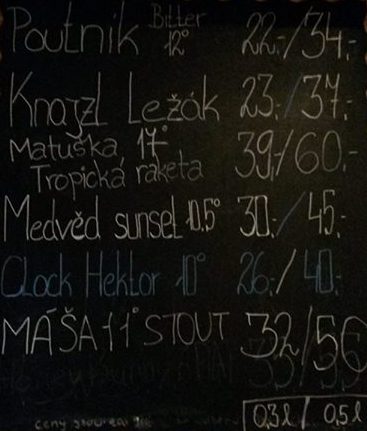 Poutník Bitter 12° 22,-/34,-
Knajzl Ležák 23,-/37,-
Matuška 17° 39,-/60,-
Tropická raketa
Medvěd sunset 10.5° 30,-/45,-
Clock Hektor 10° 26,-/40,-
MÁŠA 11° STOUT 32/56
0,3l / 0,5l
ceny